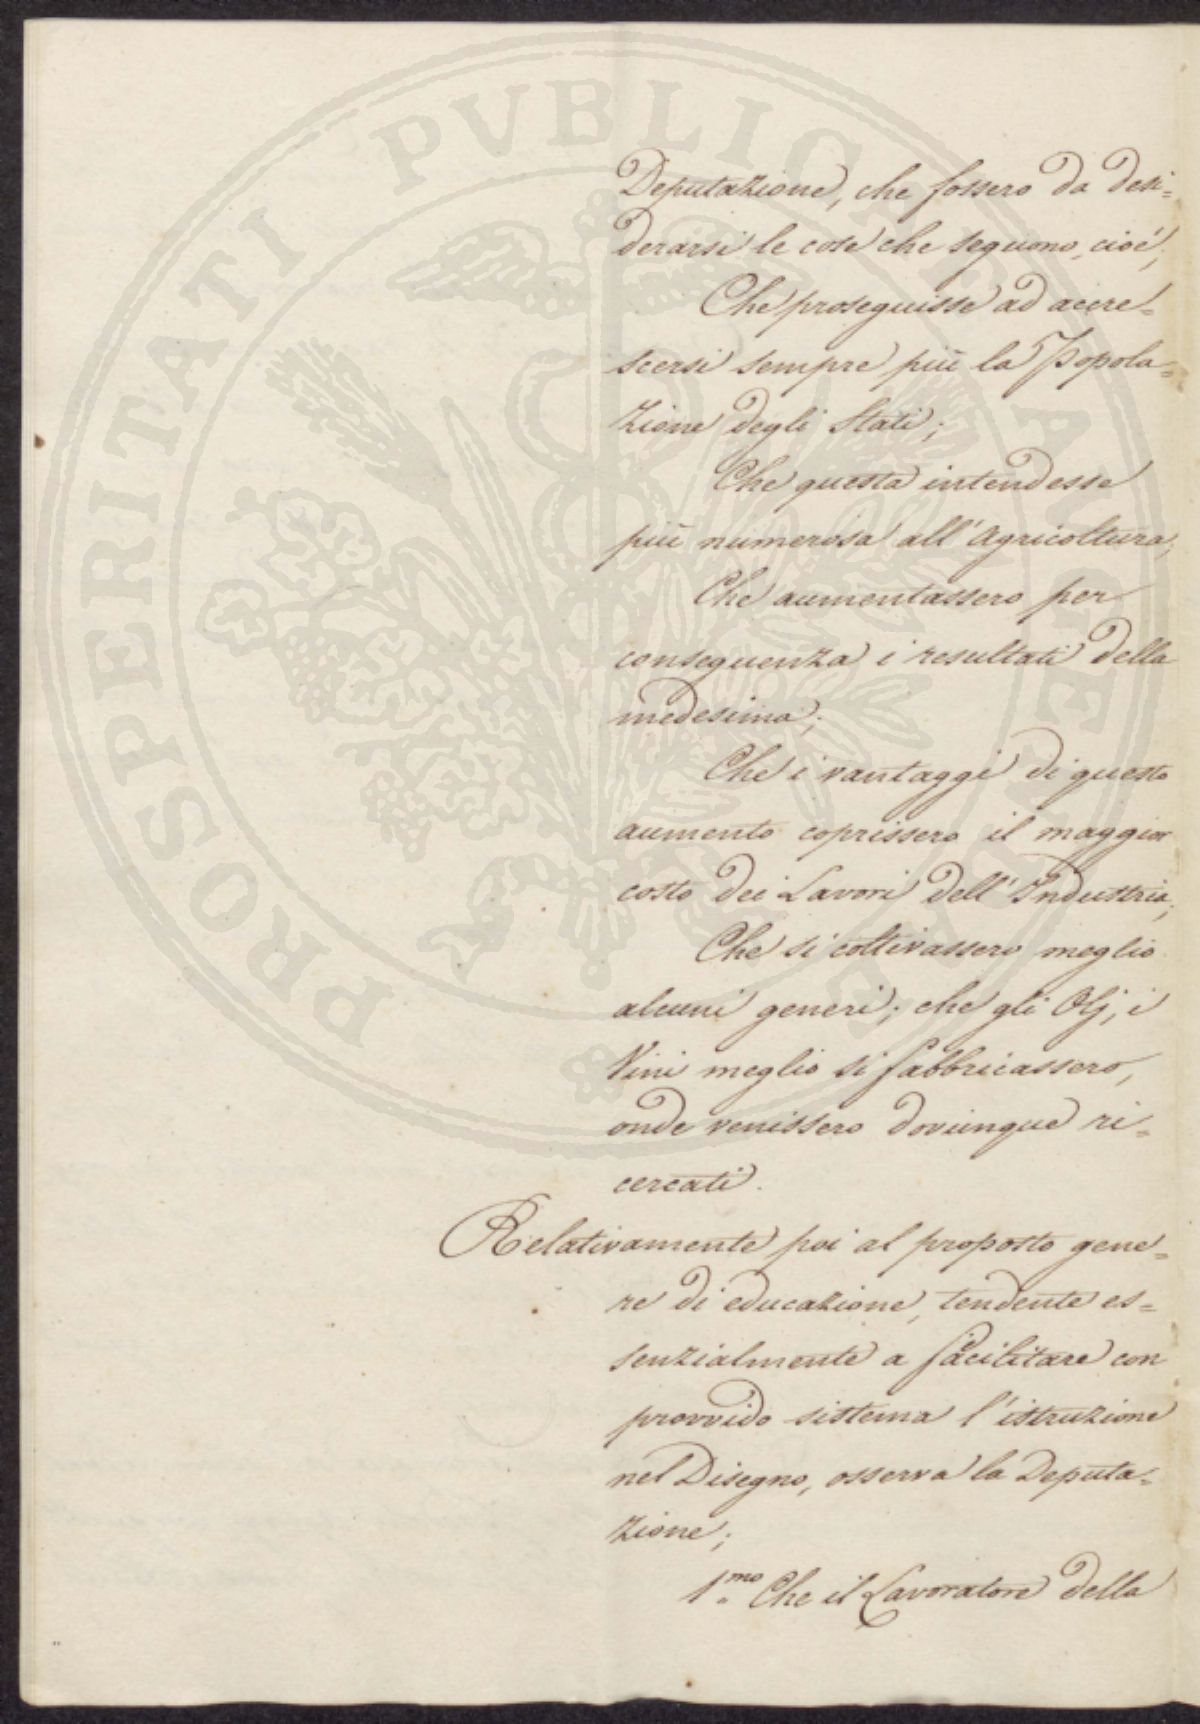 PROSPERITATI PVBLICAE AVGENDAE
Deputazione, che fossero da desi=
derarsi le cose che seguono, cioè;
Che proseguisse ad accre=
scersi sempre più la Popola=
zione degli Stati;
Che questa intendesse
più numerosa all'Agricoltura;
Che aumentassero per
conseguenza i resultati della
medesima;
Che i vantaggi di questo
aumento coprissero il maggior
costo dei Lavori dell'Industria;
Che si coltivassero meglio
alcuni generi; che gli Olj, i
Vini meglio si fabbricassero,
onde venissero dovunque ri=
cercati.
Relativamente poi al proposto gene=
re di educazione, tendente es=
senzialmente a facilitare con
provvido sistema l'istruzione
nel Disegno, osserva la Deputa=
zione;
1.mo Che il Lavoratore della